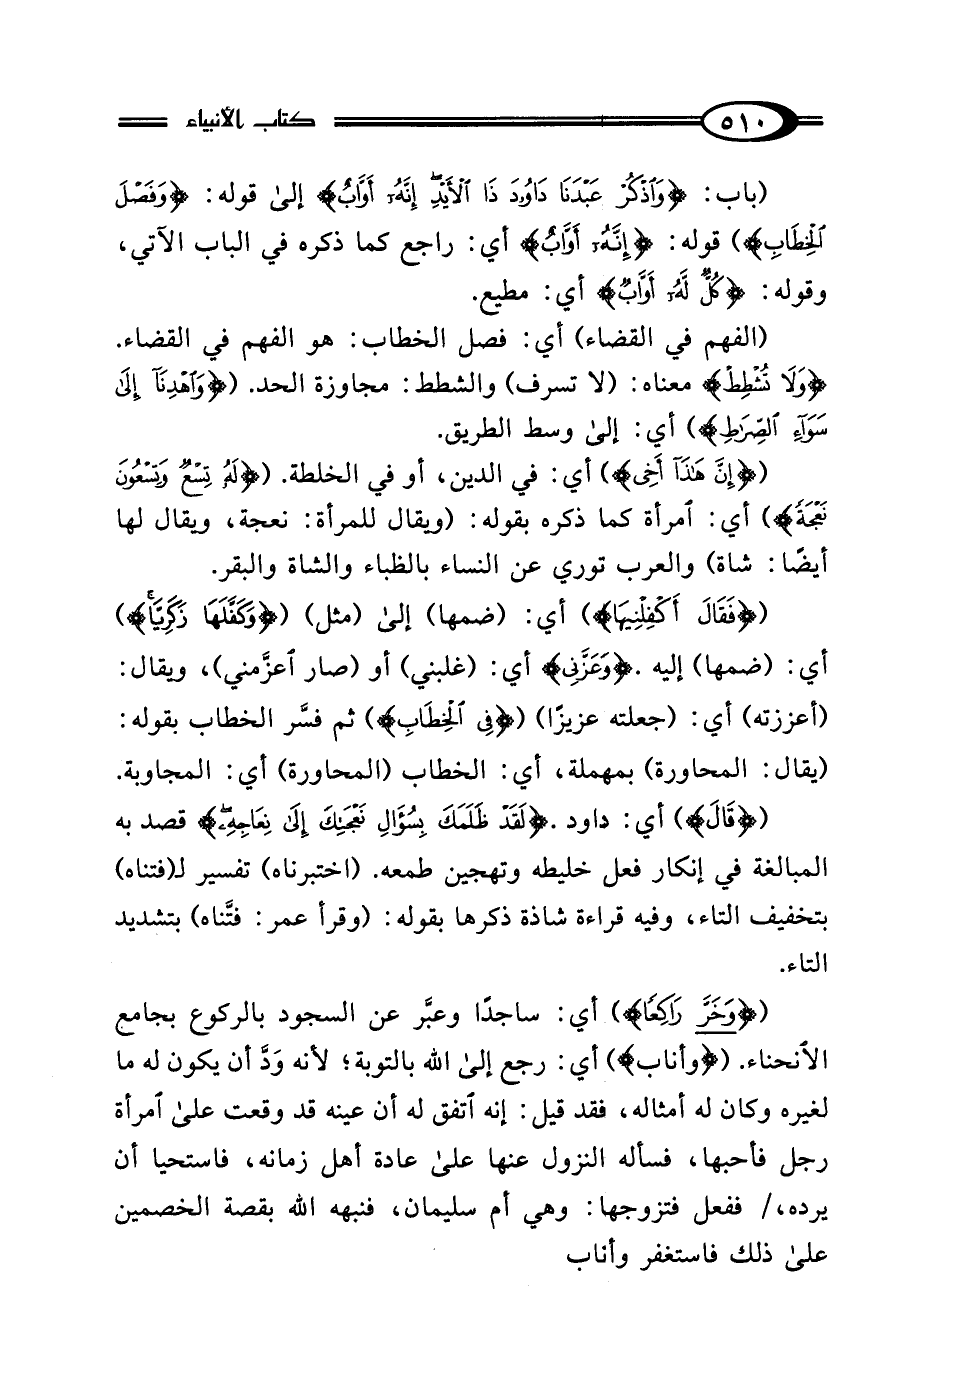 ٥١٠ كتاب الأنبياء
(باب: ﴿وَٱذْكُرْ عَبْدَنَا دَاوُۥدَ ذَا ٱلْأَيْدِ ۖ إِنَّهُۥٓ أَوَّابٌ﴾ إلىٰ قوله: ﴿وَفَصْلَ
ٱلْخِطَابِ﴾) قوله: ﴿إِنَّهُۥٓ أَوَّابٌ﴾ أي: راجع كما ذكره في الباب الآتي،
وقوله: ﴿كُلٌّ لَّهُۥٓ أَوَّابٌ﴾ أي: مطيع.
(الفهم في القضاء) أي: فصل الخطاب: هو الفهم في القضاء.
﴿وَلَا تُشْطِطْ﴾ معناه: (لا تسرف) والشطط: مجاوزة الحد. (﴿وَٱهْدِنَآ إِلَىٰ
سَوَآءِ ٱلصِّرَٰطِ﴾) أي: إلىٰ وسط الطريق.
(﴿إِنَّ هَٰذَآ أَخِى﴾) أي: في الدين، أو في الخلطة. (﴿لَهُۥ تِسْعٌ وَتِسْعُونَ
نَعْجَةً﴾) أي: ٱمرأة كما ذكره بقوله: (ويقال للمرأة: نعجة، ويقال لها
أيضًا: شاة) والعرب توري عن النساء بالظباء والشاة والبقر.
(﴿فَقَالَ أَكْفِلْنِيهَا﴾) أي: (ضمها) إلىٰ (مثل) (﴿وَكَفَّلَهَا زَكَرِيَّاءُ﴾)
أي: (ضمها) إليه .﴿وَعَزَّنِى﴾ أي: (غلبني) أو (صار ٱعزَّمني)، ويقال:
(أعززته) أي: (جعلته عزيزًا) (﴿فِى ٱلْخِطَابِ﴾) ثم فسَّر الخطاب بقوله:
(يقال: المحاورة) بمهملة، أي: الخطاب (المحاورة) أي: المجاوبة.
(﴿قَالَ﴾) أي: داود .﴿لَقَدْ ظَلَمَكَ بِسُؤَالِ نَعْجَتِكَ إِلَىٰ نِعَاجِهِۦ ۖ﴾ قصد به
المبالغة في إنكار فعل خليطه وتهجين طمعه. (اختبرناه) تفسير لـ(فتناه)
بتخفيف التاء، وفيه قراءة شاذة ذكرها بقوله: (وقرأ عمر: فتَّناه) بتشديد
التاء.
(﴿وَخَرَّ رَاكِعًا﴾) أي: ساجدًا وعبَّر عن السجود بالركوع بجامع
الٱنحناء. (﴿وأناب﴾) أي: رجع إلىٰ الله بالتوبة؛ لأنه وَدَّ أن يكون له ما
لغيره وكان له أمثاله، فقد قيل: إنه ٱتفق له أن عينه قد وقعت علىٰ ٱمرأة
رجل فأحبها، فسأله النزول عنها علىٰ عادة أهل زمانه، فاستحيا أن
يرده،/ ففعل فتزوجها: وهي أم سليمان، فنبهه الله بقصة الخصمين
علىٰ ذلك فاستغفر وأناب